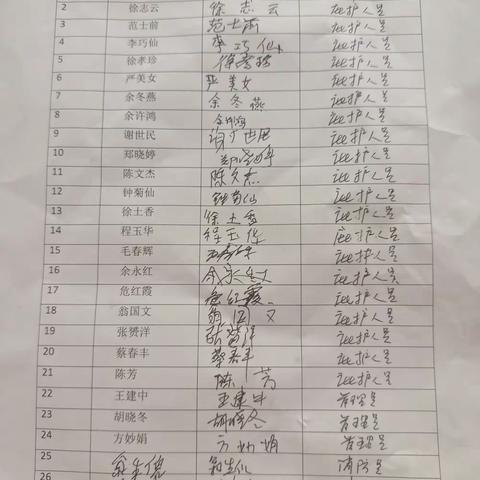 2 徐志云 徐志云 医护人员
3 范士前 范士前 医护人员
4 李巧仙 李巧仙 医护人员
5 徐孝珍 徐孝珍 医护人员
6 严美女 严美女 医护人员
7 余冬燕 余冬燕 医护人员
8 余许鸿 余许鸿 医护人员
9 谢世民 谢世民 医护人员
10 郑晓婷 郑晓婷 医护人员
11 陈文杰 陈文杰 医护人员
12 钟菊仙 钟菊仙 医护人员
13 徐土香 徐土香 医护人员
14 程玉华 程玉华 医护人员
15 毛春辉 毛春辉 医护人员
16 余永红 余永红 医护人员
17 危红霞 危红霞 医护人员
18 翁国文 翁国文 医护人员
19 张赟洋 张赟洋 医护人员
20 蔡春丰 蔡春丰 医护人员
21 陈芳 陈芳 医护人员
22 王建中 王建中 管理员
23 胡晓冬 胡晓冬 管理员
24 方妙娟 方妙娟 管理员
25 消防员
26